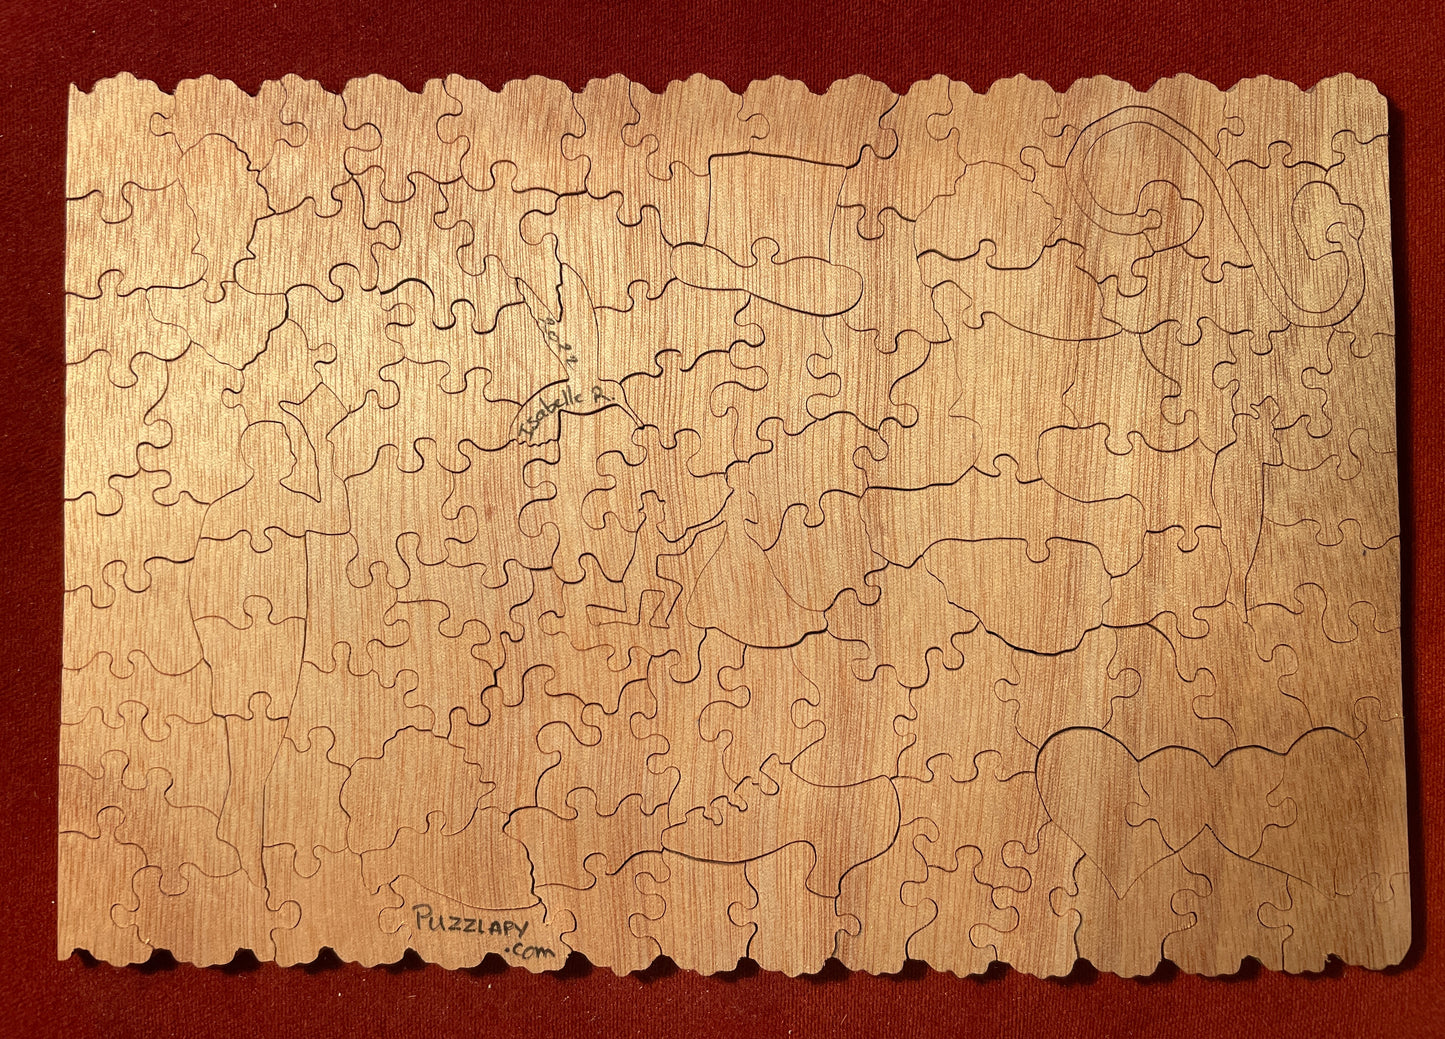 2022
Isabelle R.
PUZZLAPY
.com